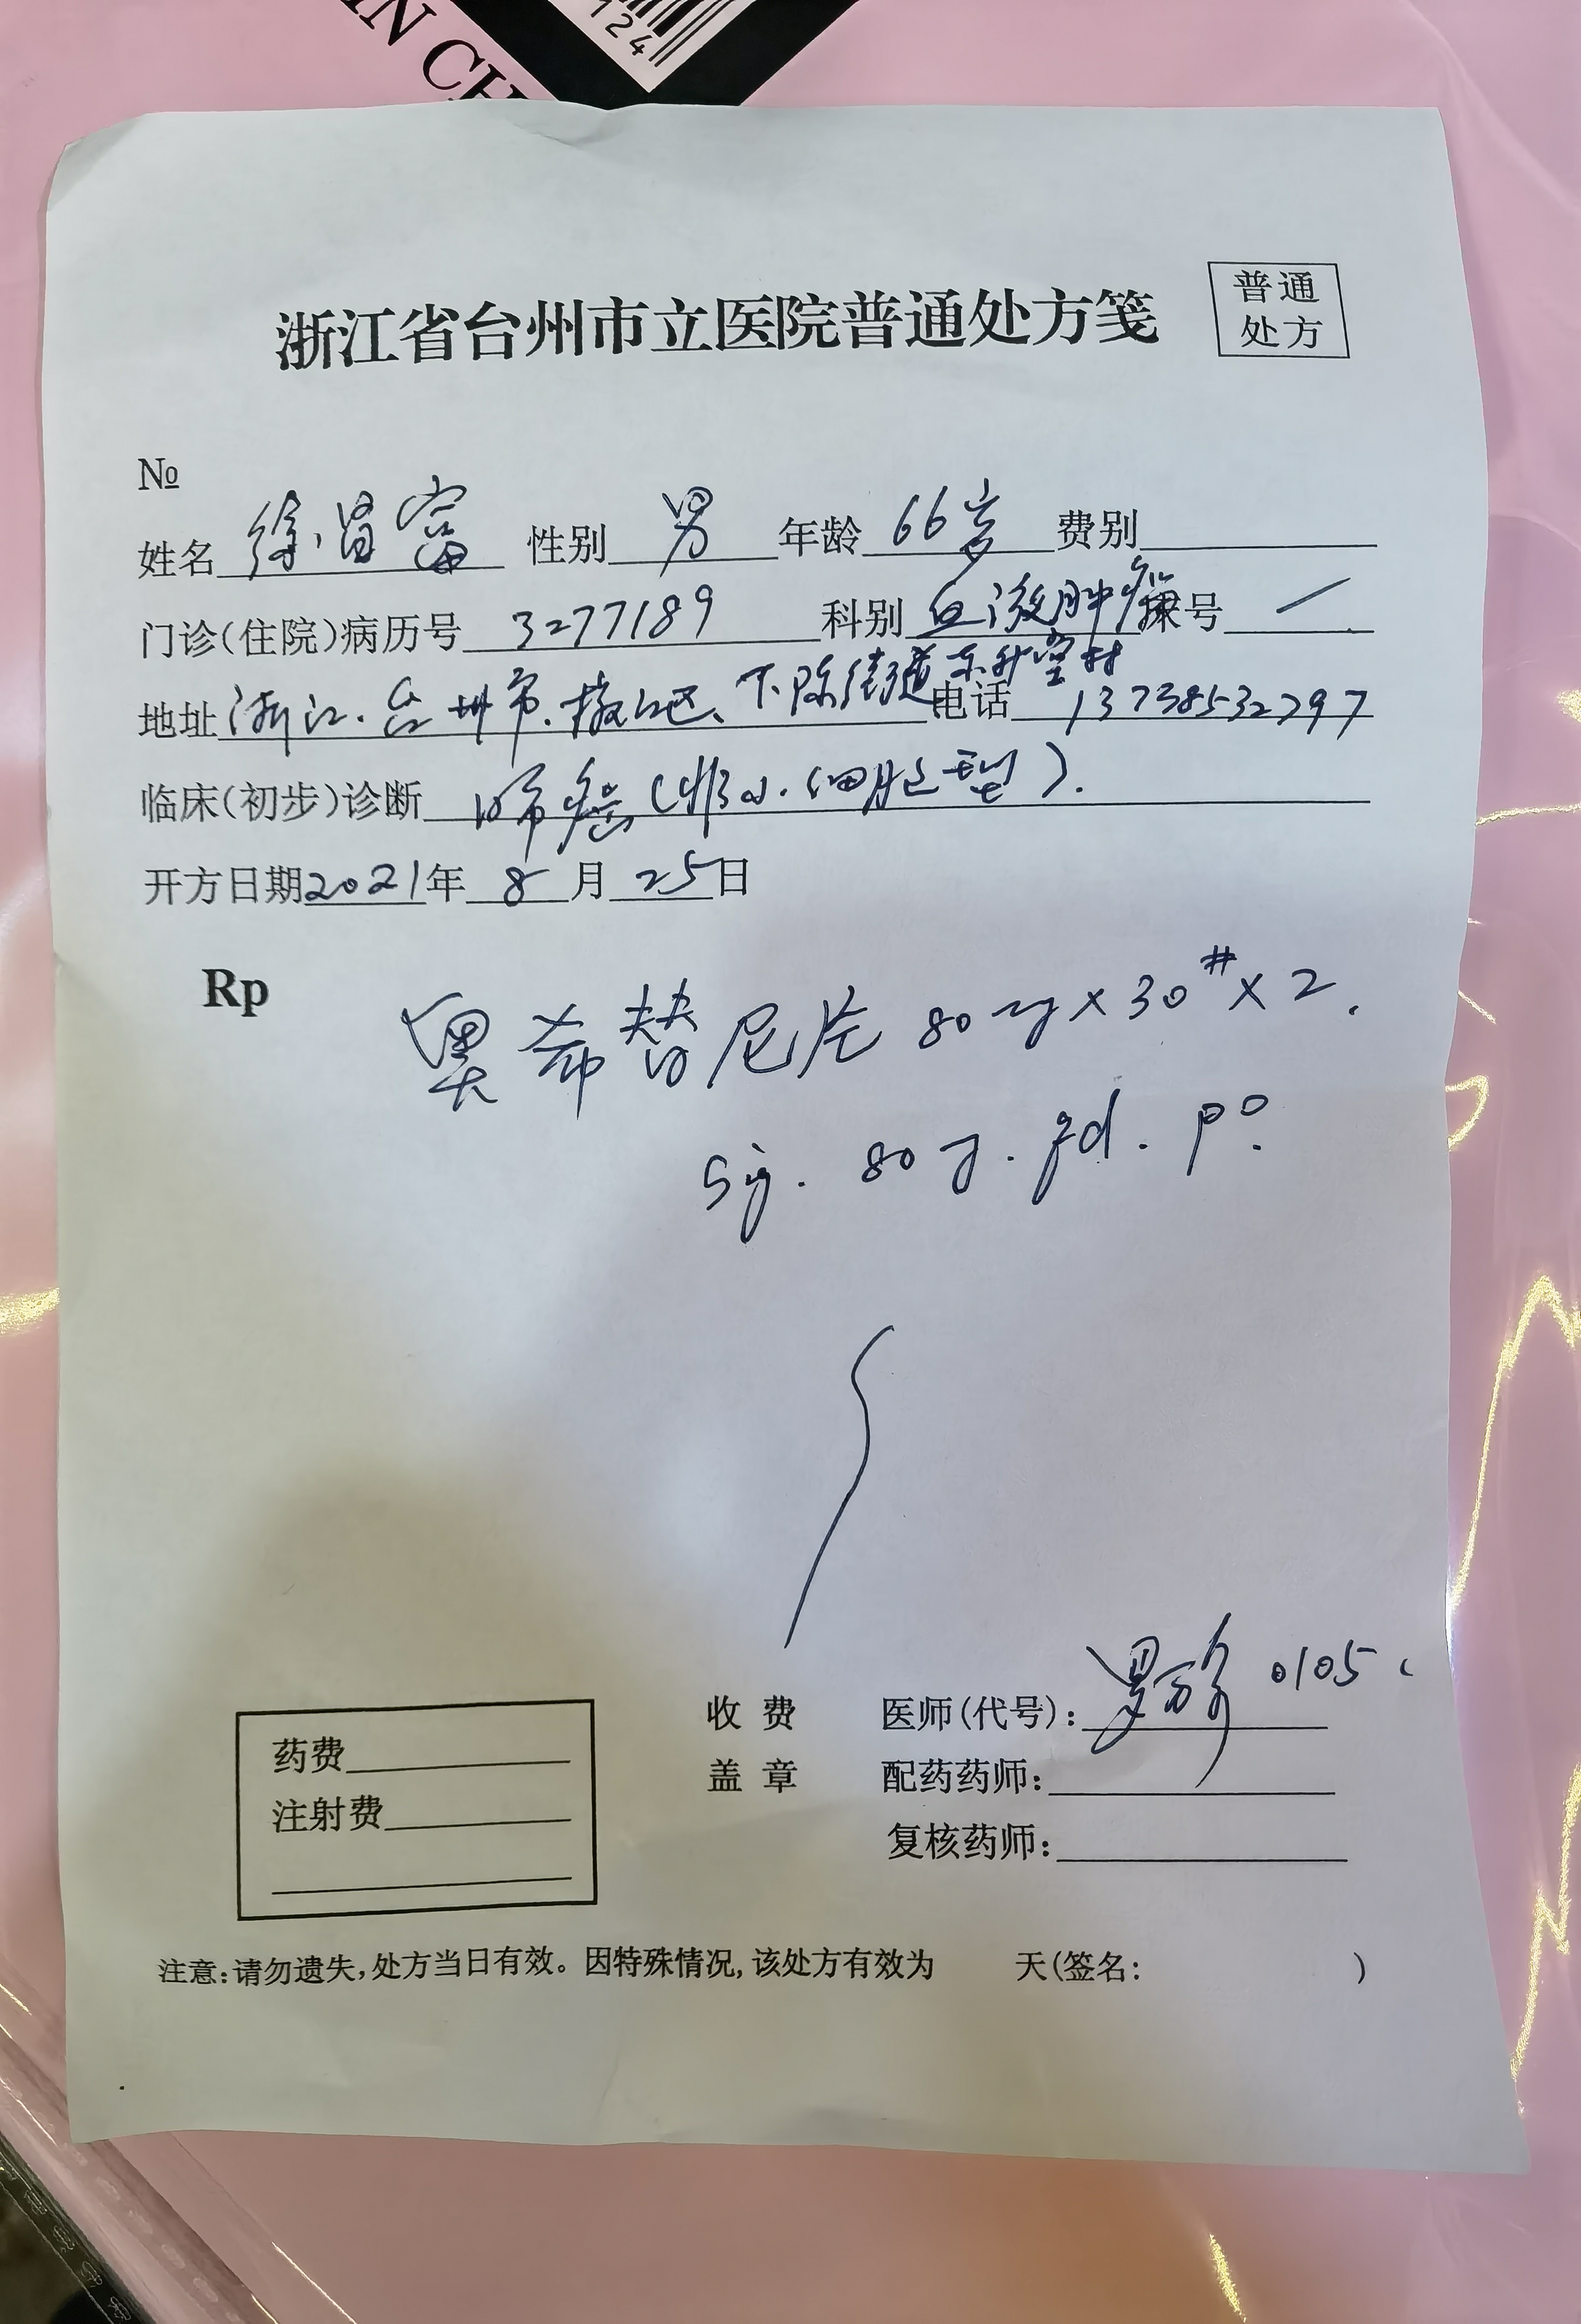 IN CH
124
浙江省台州市立医院普通处方笺
普通
处方
№
姓名 徐昌富 性别 男 年龄 66岁 费别
门诊(住院)病历号 3277189 科别 血液肿瘤 床号 /
地址 浙江.台州市.椒江区、下陈街道 电话 13738532797
临床(初步)诊断 肺癌(非小细胞型).
开方日期2021年8月25日
Rp
奥希替尼片 80mg×30#×2.
Sig. 80mg. qd. po.
收费 医师(代号): 0105
药费
盖章 配药药师:
注射费
复核药师:
注意:请勿遗失,处方当日有效。因特殊情况,该处方有效为 天(签名: )